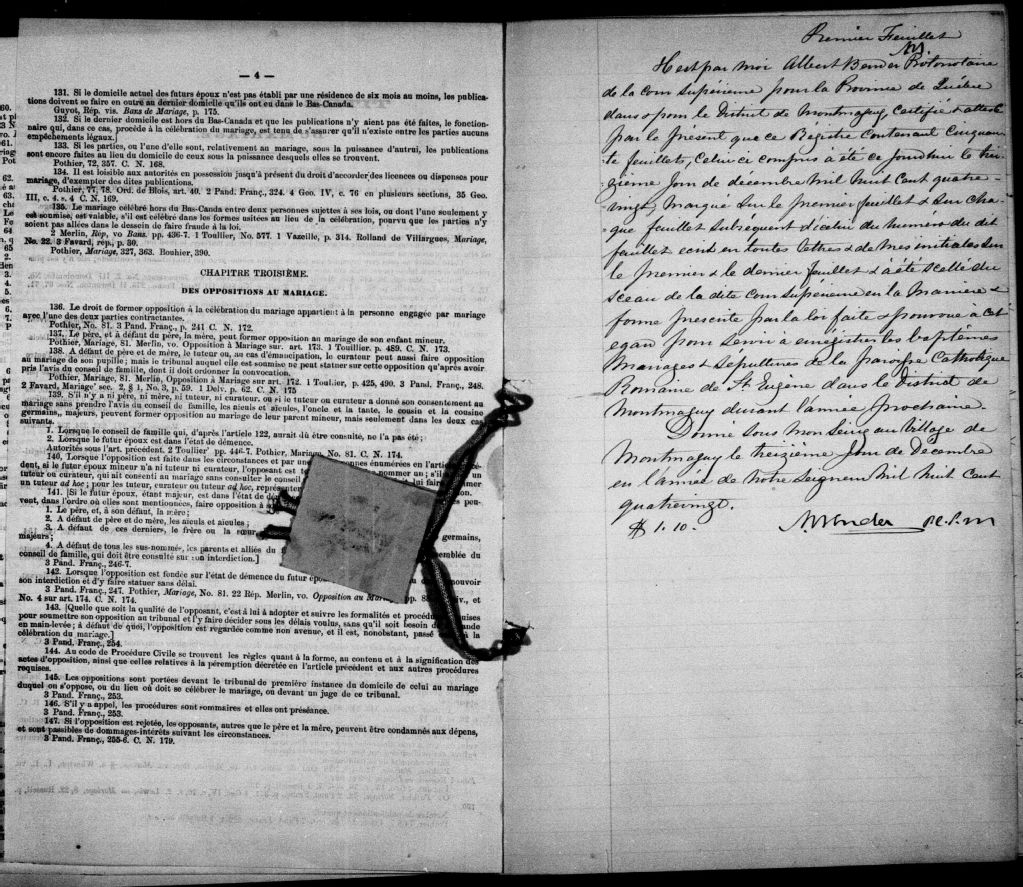 — 4 —
131. Si le domicile actuel des futurs époux n'est pas établi par une résidence de six mois au moins, les publica-
tions doivent se faire en outre au dernier domicile qu'ils ont eu dans le Bas-Canada.
Guyot, Rép. vis. Bans de Mariage, p. 175.
132. Si le dernier domicile est hors du Bas-Canada et que les publications n'y aient pas été faites, le fonction-
naire qui, dans ce cas, procède à la célébration du mariage, est tenu de s'assurer qu'il n'existe entre les parties aucuns
empêchements légaux.]
133. Si les parties, ou l'une d'elles, sont, relativement au mariage, sous la puissance d'autrui, les publications
sont encore faites au lieu du domicile de ceux sous la puissance desquels elles se trouvent.
Pothier, 72, 357. C. N. 168.
134. Il est loisible aux autorités en possession jusqu'à présent du droit d'accorder les licences ou dispenses pour
mariage, d'exempter des dites publications.
Pothier, 77, 78. Ord. de Blois, art. 40. 2 Pand. Franç., 324. 4 Geo. IV, c. 76 en plusieurs sections, 35 Geo.
III, c. 4. s. 4 C. N. 169.
135. Le mariage célébré hors du Bas-Canda entre deux personnes sujettes à ses lois, ou dont l'une seulement y
est soumise, est valable, s'il est célébré dans les formes usitées au lieu de la célébration, pourvu que les parties n'y
soient pas allées dans le dessein de faire fraude à la loi.
2 Merlin, Rép, vo Bans. pp. 436-7. 1 Toullier, No. 577. 1 Vazeille, p. 314. Rolland de Villargues, Mariage,
No. 22. 3 Favard, rép., p. 30.
Pothier, Mariage, 327, 363. Bouhier, 390.
CHAPITRE TROISIÈME.
DES OPPOSITIONS AU MARIAGE.
136. Le droit de former opposition à la célébration du mariage appartient à la personne engagée par mariage
avec l'une des deux parties contractantes.
Pothier, No. 81. 3 Pand. Franç., p. 241 C. N. 172.
137. Le père, et à défaut du père, la mère, peut former opposition au mariage de son enfant mineur.
Pothier, Mariage, 81. Merlin, vo. Opposition à Mariage sur. art. 173. 1 Toullier p. 489. C. N. 173.
138. A défaut de père et de mère, le tuteur ou, au cas d'émancipation, le curateur peut aussi faire opposition
au mariage de son pupille; mais le tribunal auquel elle est soumise ne peut statuer sur cette opposition qu'après avoir
pris l'avis du conseil de famille, dont il doit ordonner la convocation.
Pothier, Mariage, 81. Merlin, Opposition à Mariage sur art. 172. 1 Toullier, p. 425, 490. 3 Pand. Franç., 248.
2 Favard, Mariage' sec. 2, § 1, No. 3, p. 59. 1 Delv. p. 62. C. N. 175
139. S'il n'y a ni père, ni mère, ni tuteur, ni curateur. ou si le tuteur ou curateur a donné son consentement au
mariage sans prendre l'avis du conseil de famille, les aieuls et aieules, l'oncle et la tante, le cousin et la cousine
germains, majeurs, peuvent former opposition au mariage de leur parent mineur, mais seulement dans les deux cas
suivants.
1. Lorsque le conseil de famille qui, d'après l'article 122, aurait dû être consulté, ne l'a pas été;
2. Lorsque le futur époux est dans l'état de démence.
Autorités sous l'art. précédent. 2 Toullier' pp. 446-7. Pothier, Mariage, No. 81. C. N. 174.
140, Lorsque l'opposition est faite dans les circonstances et par une
dent, si le futur époux mineur n'a ni tuteur ni curateur, l'opposant est
tuteur ou curateur, qui ait consenti au mariage sans consulter le conse
un tuteur ad hoc; pour les tuteur, curateur ou tuteur ad hoc, représenter
141. [Si le futur époux, étant majeur, est dans l'état de dé
vent, dans l'ordre où elles sont mentionnées, faire opposition à
1. Le père, et, à son défaut, la mère;
2. A défaut de père et de mère, les aieuls et aieules;
3. A défaut de ces derniers, le frère ou la sœur germains,
majeurs;
4. A défaut de tous les sus-nommés, les parents et alliés du
conseil de famille, qui doit être consulté sur son interdiction.]
3 Pand. Franç., 246-7.
142. Lorsque l'opposition est fondée sur l'état de démence du futur époux
son interdiction et d'y faire statuer sans délai.
3 Pand. Franç., 247. Pothier, Mariage, No. 81. 22 Rép. Merlin, vo. Opposition au Mariage
No. 4 sur art. 174. C. N. 174.
143. [Quelle que soit la qualité de l'opposant, c'est à lui à adopter et suivre les formalités et procédures requises
pour soumettre son opposition au tribunal et l'y faire décider sous les délais voulus, sans qu'il soit besoin de demande
en main-levée; à défaut de quoi, l'opposition est regardée comme non avenue, et il est, nonobstant, passé outre à la
célébration du mariage.]
3 Pand. Franç., 254.
144. Au code de Procédure Civile se trouvent les règles quant à la forme, au contenu et à la signification des
actes d'opposition, ainsi que celles relatives à la péremption décrétée en l'article précédent et aux autres procédures
requises.
145. Les oppositions sont portées devant le tribunal de première instance du domicile de celui au mariage
duquel on s'oppose, ou du lieu où doit se célébrer le mariage, ou devant un juge de ce tribunal.
3 Pand. Franç., 253.
146. S'il y a appel, les procédures sont sommaires et elles ont préséance.
3 Pand. Franç., 253.
147. Si l'opposition est rejetée, les opposants, autres que le père et la mère, peuvent être condamnés aux dépens,
et sont passibles de dommages-intérêts suivant les circonstances.
3 Pand. Franç., 255-6. C. N. 179.
Premier Feuillet
Il est par moi Albert Bender Protonotaire
de la cour Supérieure pour la Province de Québec
dans & pour le District de Montmagny, certifié & attesté
par le présent que ce Registre contenant cinquan
te feuillets, celui ci compris a été ce jourdhui le trei
zième jour de décembre mil huit cent quatre-
vingt, marqué sur le premier feuillet & sur cha
que feuillet subséquent d'icelui du numéro du dit
feuillet écrit en toutes lettres & de mes initiales sur
le premier & le dernier feuillet & a été scellé du
sceau de la dite cour supérieure en la manière &
forme prescrite par la loi faite & pourvue à cet
égard pour servir à enrégistrer les baptêmes
Mariages & Sépultures de la paroisse Catholique
Romaine de St Eugène dans le District de
Montmagny durant l'année prochaine.
Donné sous mon Seing au Village de
Montmagny le treizième jour de Décembre
en l'année de Notre Seigneur mil huit cent
quatrevingt.
$ 1.10. A Bender P.C.S.M